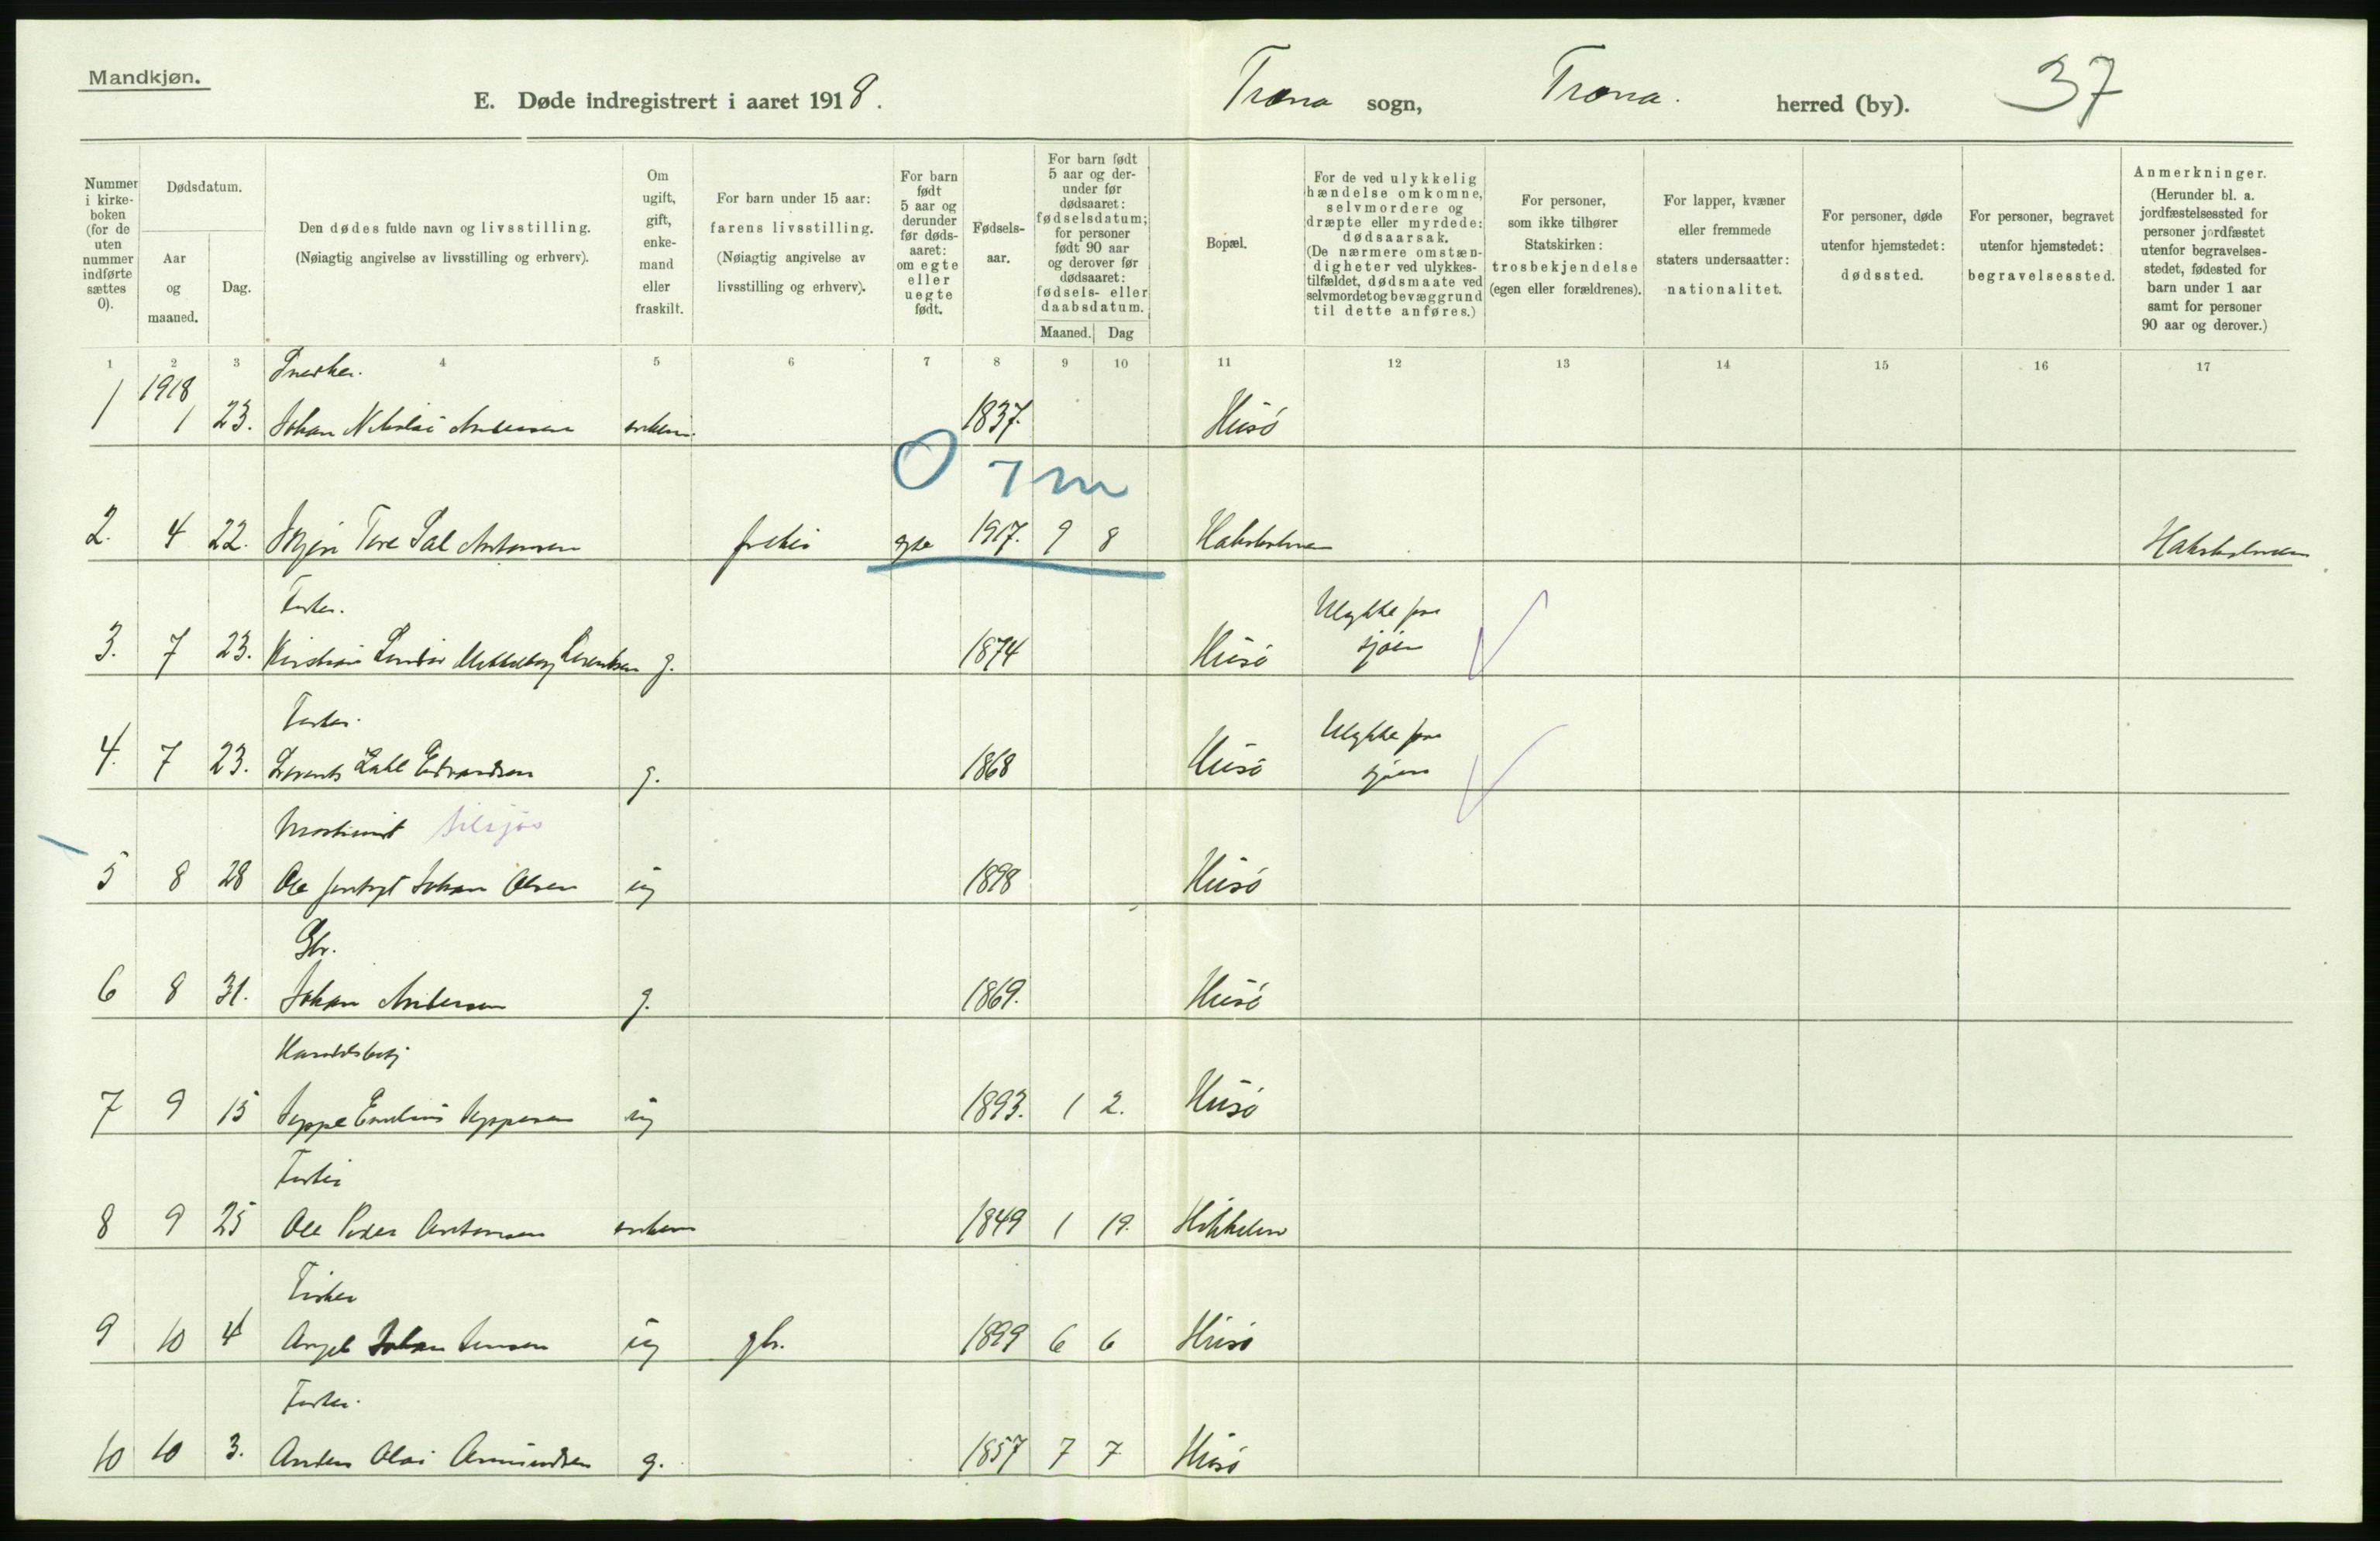 Mandkjøn.
E. Døde indregistrert i aaret 1918.
Træna sogn, Træna. herred (by). 37
Nummer i kirke-boken (for de uten nummer indførte sættes 0).
Dødsdatum.
Aar og maaned.
Dag.
Den dødes fulde navn og livsstilling.
(Nøiagtig angivelse av livsstilling og erhverv).
Om ugift, gift, enke-mand eller fraskilt.
For barn under 15 aar: farens livsstilling.
(Nøiagtig angivelse av livsstilling og erhverv).
For barn født 5 aar og derunder før døds-aaret: om egte eller uegte født.
Fødsels-aar.
For barn født 5 aar og der-under før dødsaaret: fødselsdatum; for personer født 90 aar og derover før dødsaaret: fødsels- eller daabsdatum.
Maaned. Dag
Bopæl.
For de ved ulykkelig hændelse omkomne, selvmordere og dræpte eller myrdede: dødsaarsak.
(De nærmere omstæn-digheter ved ulykkes-tilfældet, dødsmaate ved selvmordet og bevæggrund til dette anføres.)
For personer, som ikke tilhører Statskirken: trosbekjendelse (egen eller forældrenes).
For lapper, kvæner eller fremmede staters undersaatter: nationalitet.
For personer, døde utenfor hjemstedet: dødssted.
For personer, begravet utenfor hjemstedet: begravelsessted.
Anmerkninger.
(Herunder bl. a. jordfæstelsessted for personer jordfæstet utenfor begravelses-stedet, fødested for barn under 1 aar samt for personer 90 aar og derover.)
1 2 3 4 5 6 7 8 9 10 11 12 13 14 15 16 17
Snedker.
1 1918 1 23. Johan Nikolai Andersen enkem. 1837. Husö
0 7 m
2. 4 22. Tore Antonsen fisker egte 1917. 9 8
Fisker.
3. 7 23. Kristian Lorentsen g. 1874 Husö Ulykke paa sjøen
Fisker.
4. 7 23. Lorents Zahl Edvardsen g. 1868 Husö Ulykke paa sjøen
Maskinist tilsjøs
5 8 28 Ole Johan Olsen ug 1898 Husö
Gbr.
6 8 31. Johan Andersen g. 1869. Husö
Handelsbetj
7 9 15 Jeppe Emelius Jeppesen ug 1893. 1 2. Husö
Fisker
8 9 25 Ole Peder Antonsen enkem 1849 1 19.
Fisker
9 10 4 Angel Johan Jensen ug gbr. 1899 6 6 Husö
Fisker.
10 10 3. Anders Olai Amundsen g. 1857 7 7 Husö